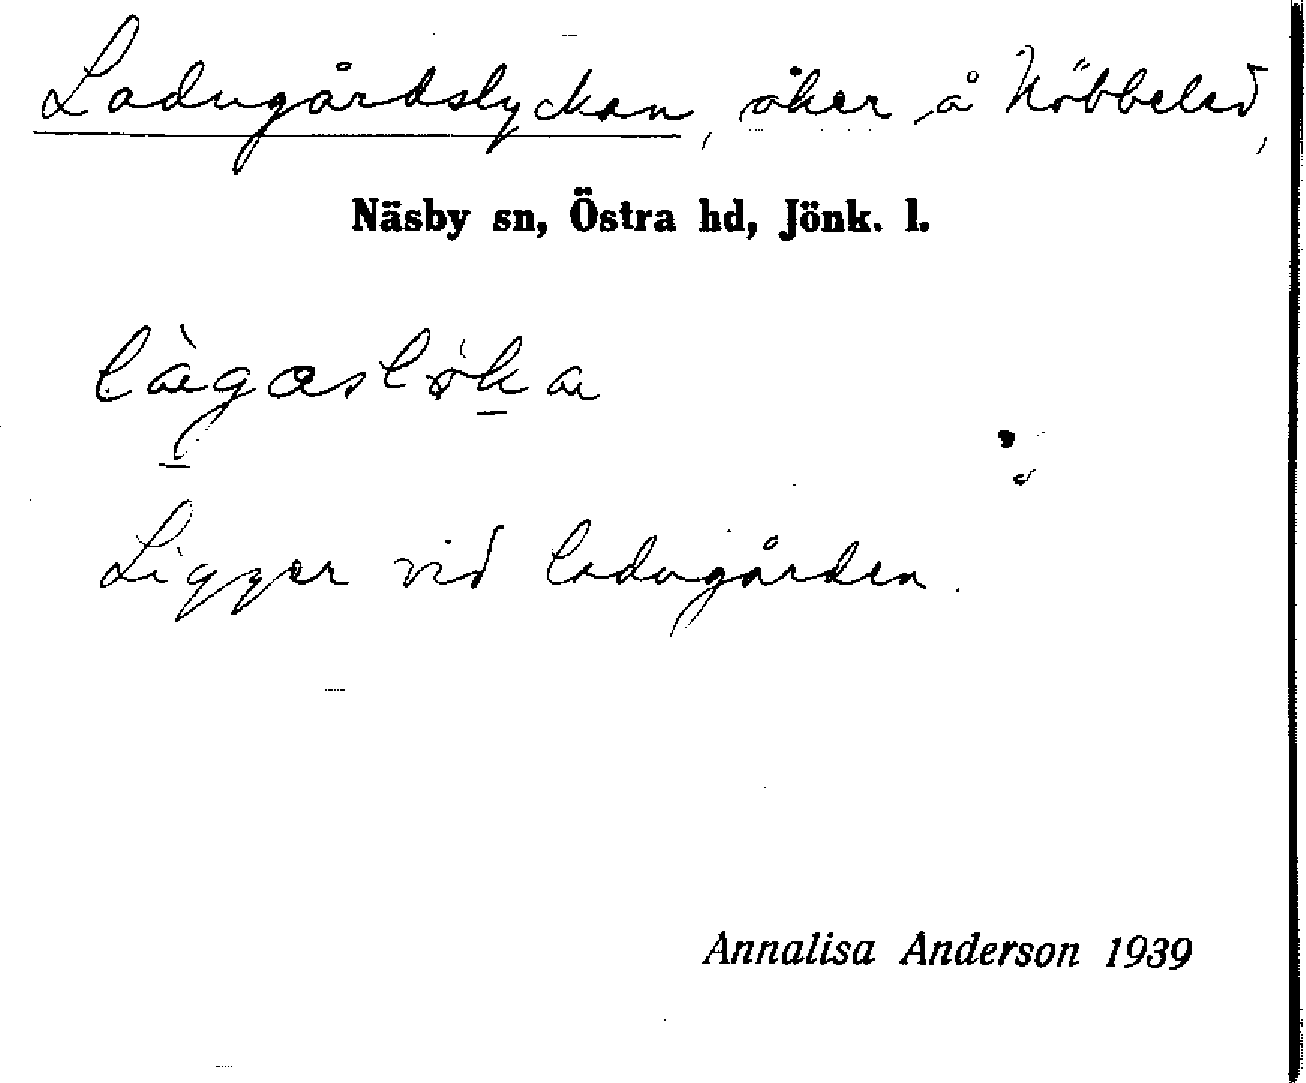 Ladugårdslyckan, åker å Nöbbeled,
Näsby sn, Östra hd, Jönk. l.
Ligger vid ladugården.
Annalisa Anderson 1939